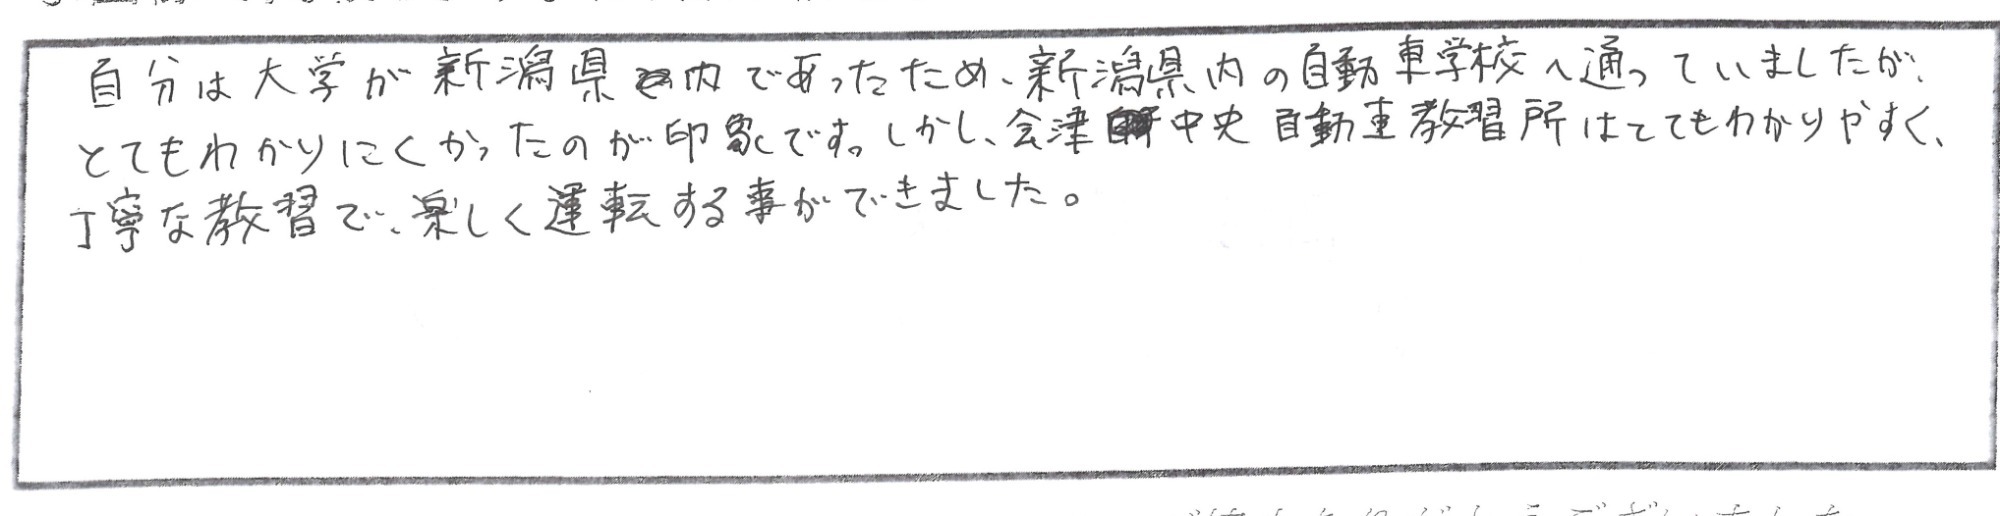 自分は大学が新潟県内であったため、新潟県内の自動車学校へ通っていましたが、
とてもわかりにくかったのが印象です。しかし、会津中央自動車教習所はとてもわかりやすく、
丁寧な教習で、楽しく運転する事ができました。